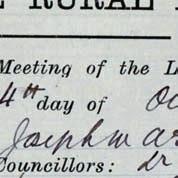 RURAL
Meeting of the L
4th day of Oc
Joseph
Councillors: Dr